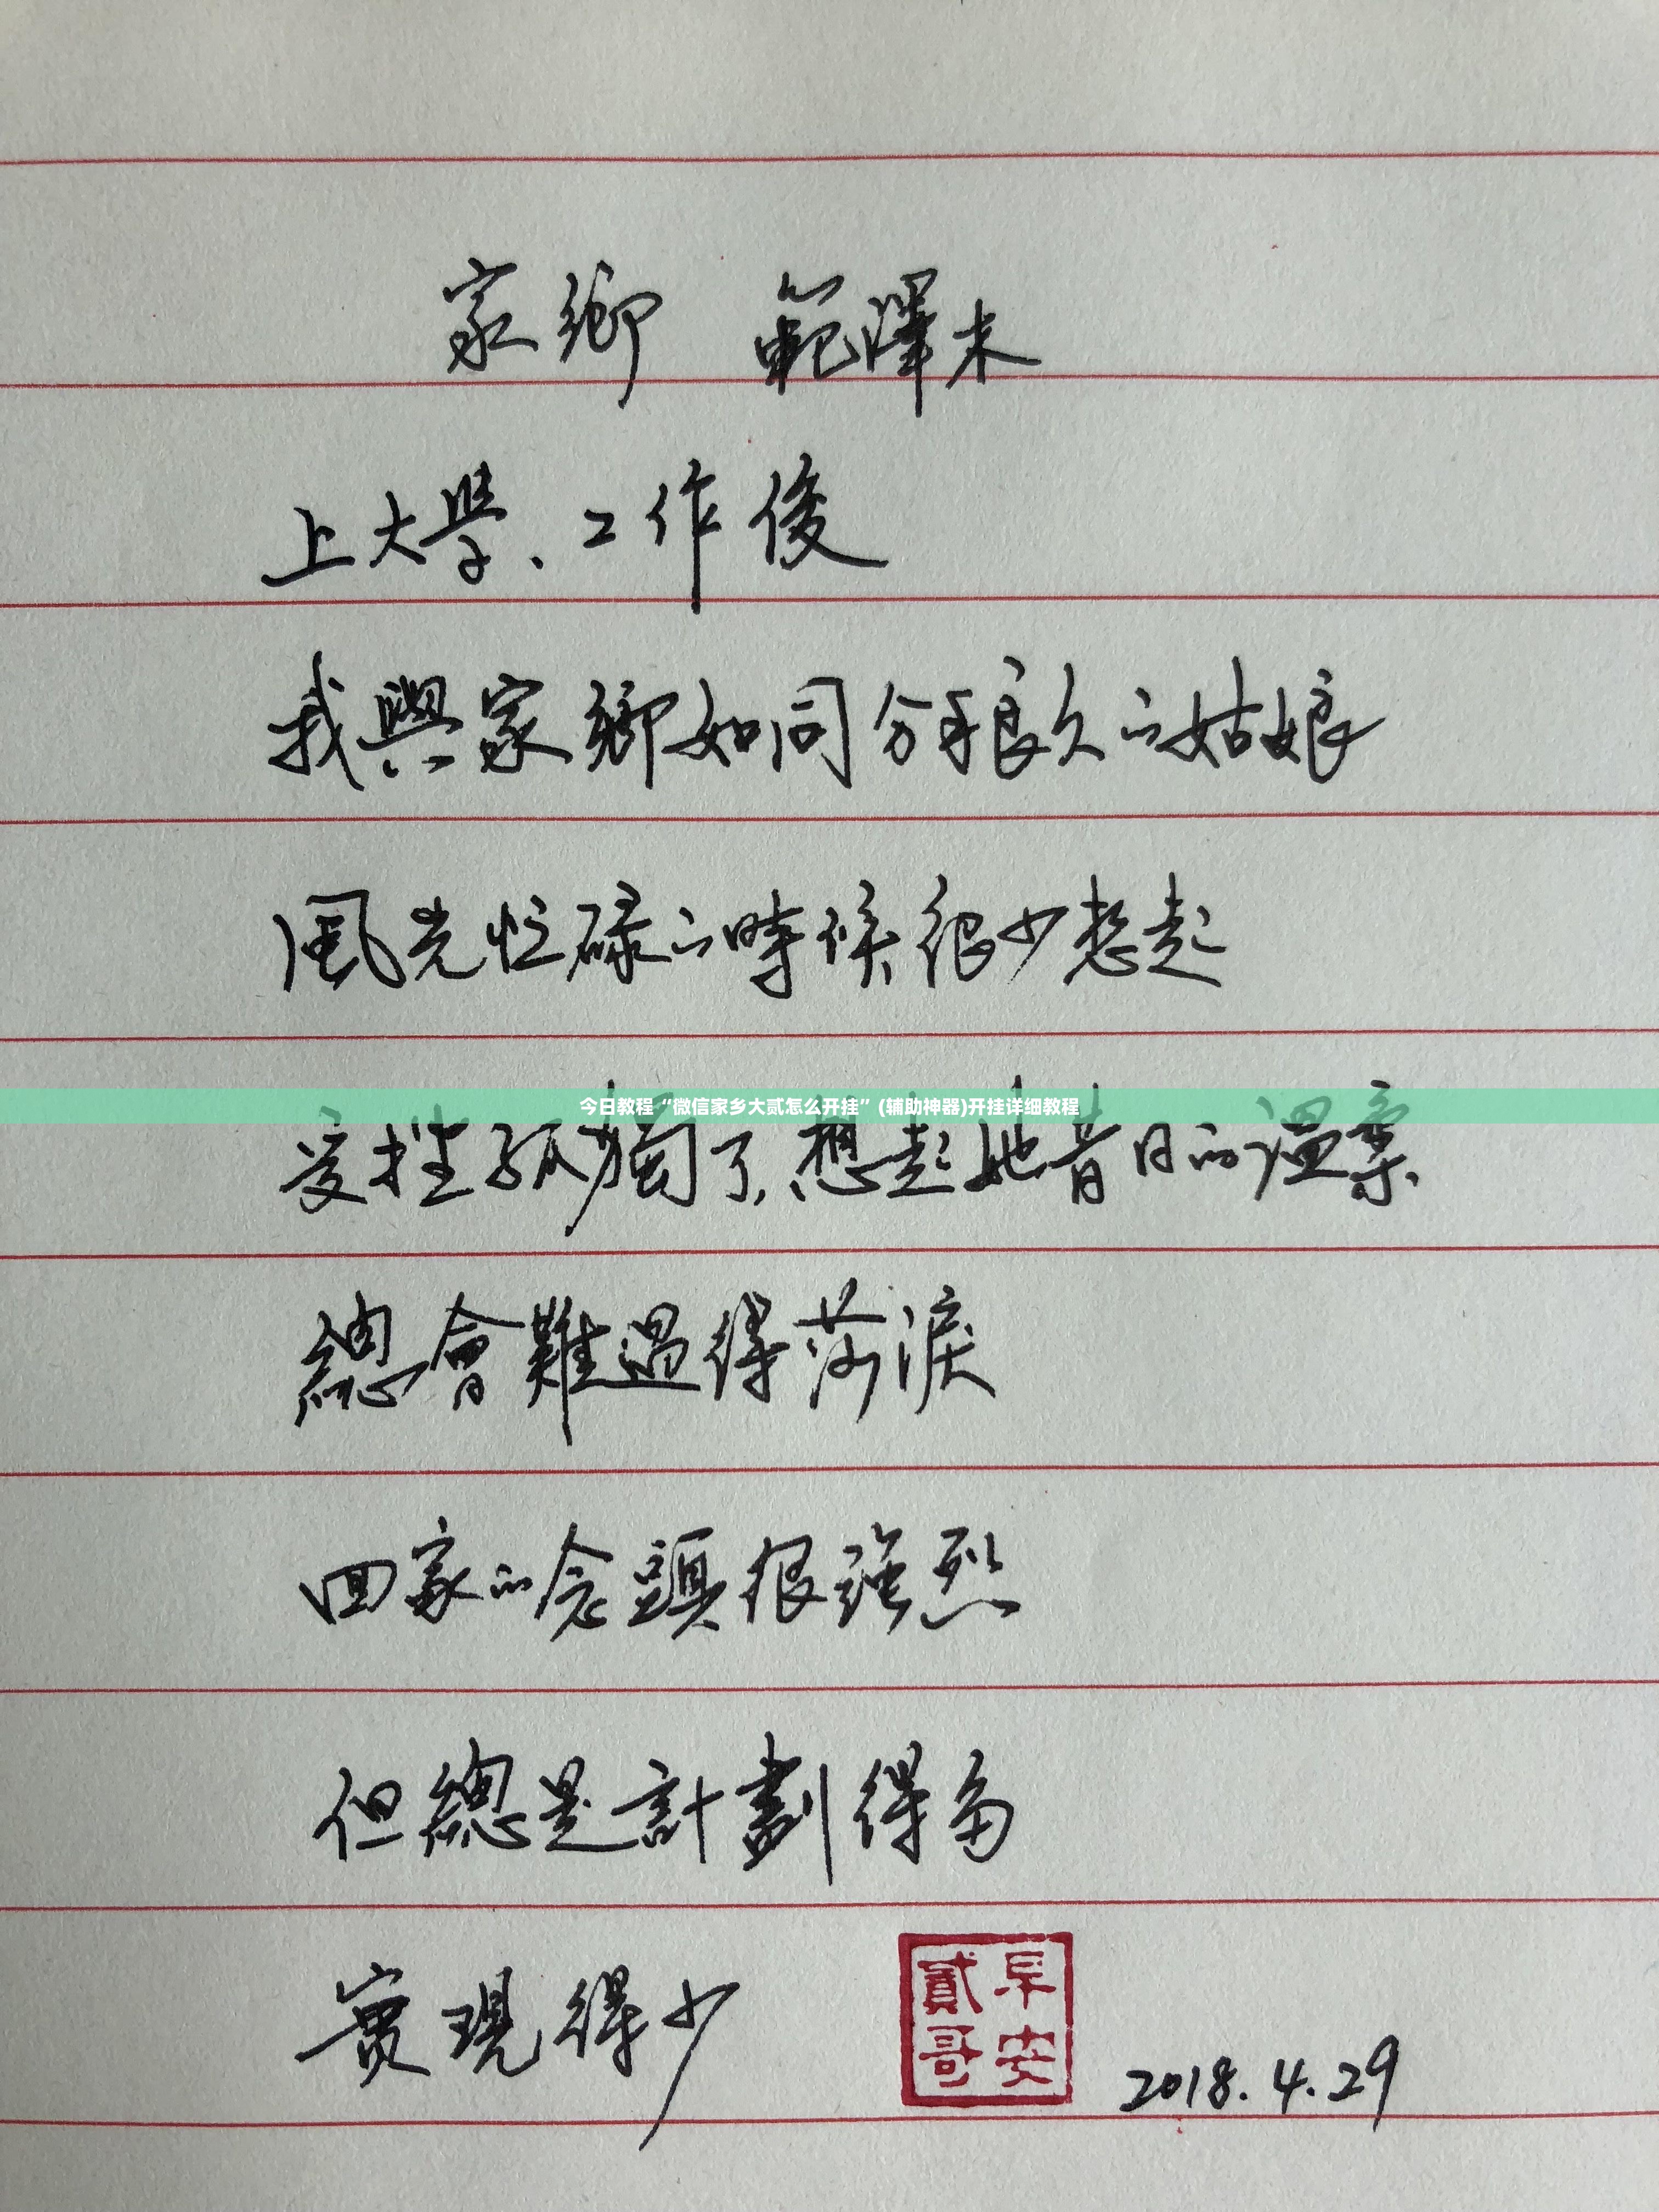 家鄉 範澤木
上大學、工作後
我與家鄉如同分手很久的姑娘
風光忙碌的時候很少想起
今日教程“微信家乡大贰怎么开挂”(辅助神器)开挂详细教程
受挫孤獨了,想起她昔日的溫柔
總會難過得落淚
回家的念頭很強烈
但總是計劃得多
實現得少
早安
貳哥
2018.4.29